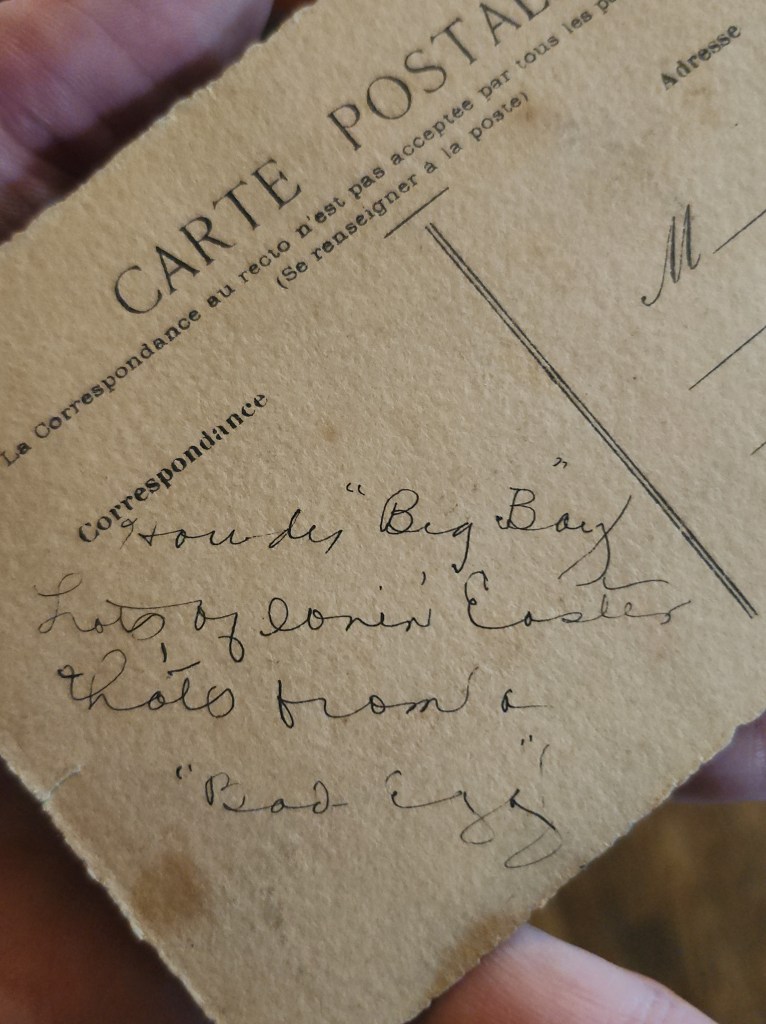 CARTE POSTAL
La Correspondance au recto n'est pas acceptée par tous les
(Se renseigner à la poste)
Correspondance
Adresse
M
Howdy "Big Boy"
Lots of lovin' Easter
tho'ts from a
"Bad Egg"